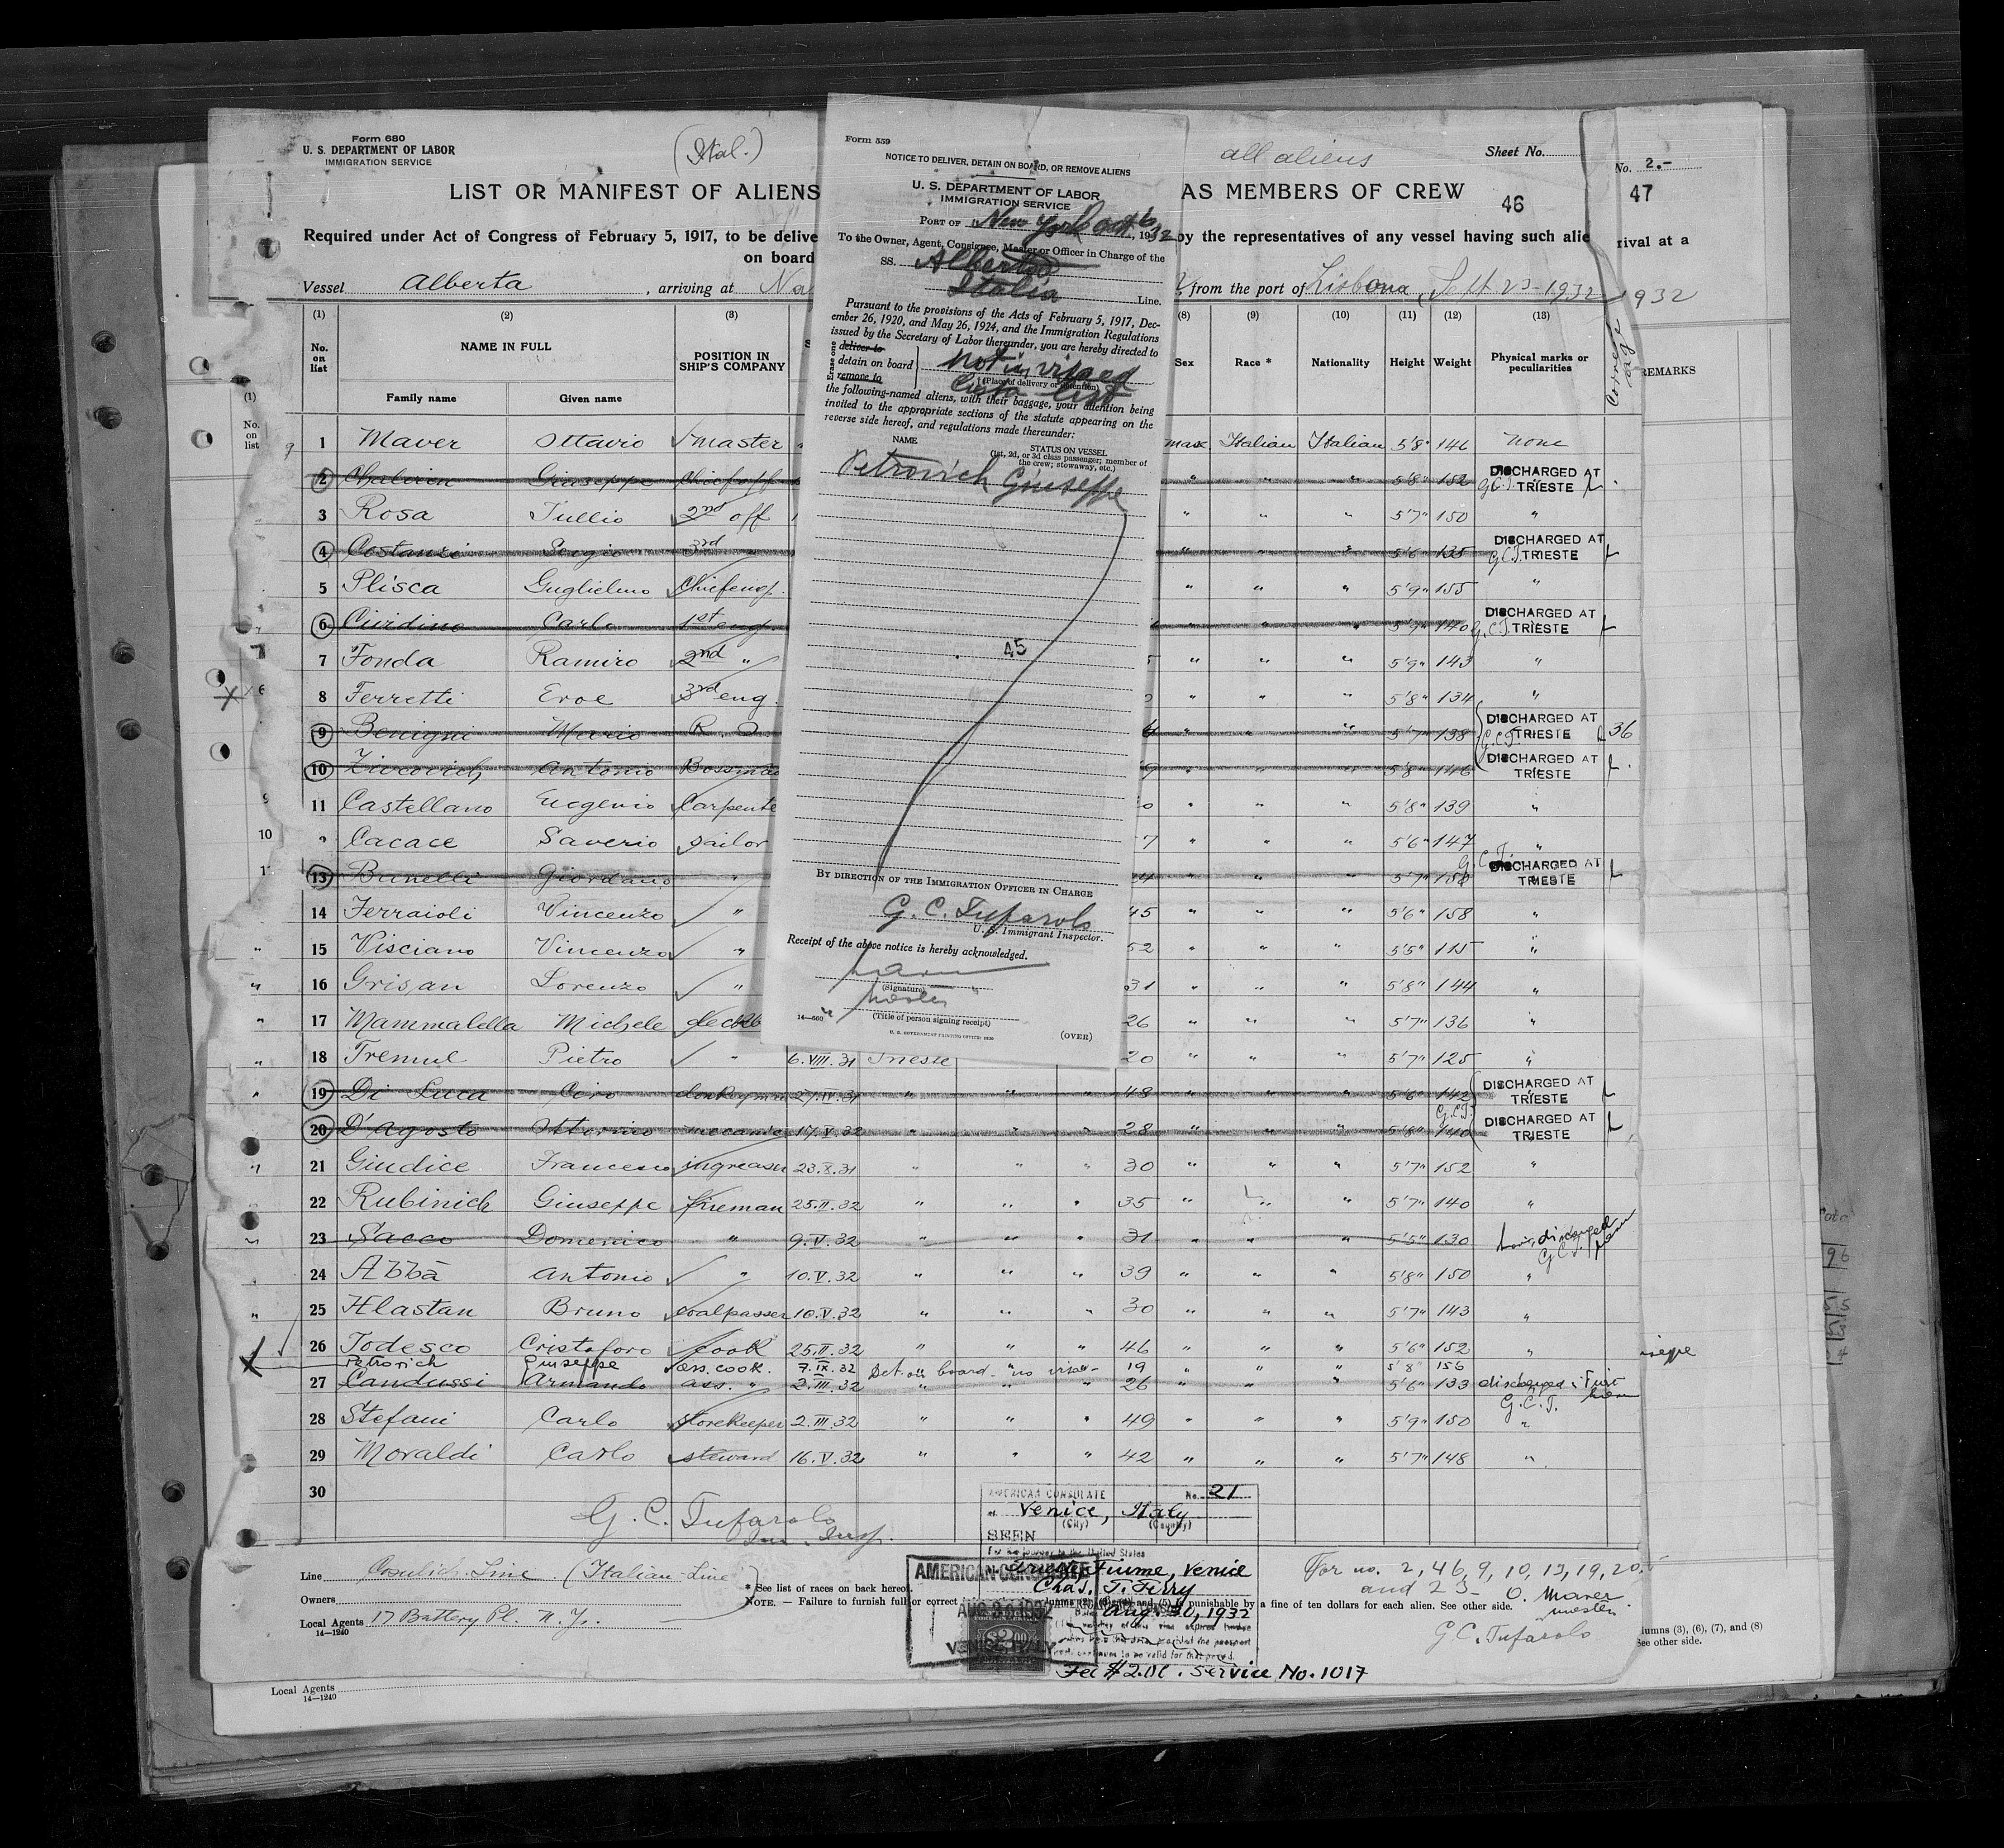 Form 680
U. S. DEPARTMENT OF LABOR
IMMIGRATION SERVICE
(Ital.)
all aliens
Sheet No.
No. 2.-
LIST OR MANIFEST OF ALIENS
AS MEMBERS OF CREW
46
47
Required under Act of Congress of February 5, 1917, to be delive
by the representatives of any vessel having such alie
rival at a
on board
Vessel Alberta, arriving at
from the port of Lisbona, 1932
1932
Form 559
NOTICE TO DELIVER, DETAIN ON BOARD, OR REMOVE ALIENS
U. S. DEPARTMENT OF LABOR
IMMIGRATION SERVICE
PORT OF New York Oct 6, 1932
To the Owner, Agent, Consignee, Master or Officer in Charge of the
SS. Alberta
Italia Line.
Pursuant to the provisions of the Acts of February 5, 1917, Dec-
ember 26, 1920, and May 26, 1924, and the Immigration Regulations
issued by the Secretary of Labor thereunder, you are hereby directed to
Erase one
deliver to
detain on board
remove to
not in visaed
(Place of delivery or detention)
list
the following-named aliens, with their baggage, your attention being
invited to the appropriate sections of the statute appearing on the
reverse side hereof, and regulations made thereunder:
NAME
STATUS ON VESSEL
(1st, 2d, or 3d class passenger; member of
the crew; stowaway, etc.)
Petrovich Giuseppe
45
BY DIRECTION OF THE IMMIGRATION OFFICER IN CHARGE
G. C. Tufarolo
U. S. Immigrant Inspector.
Receipt of the above notice is hereby acknowledged.
(Signature)
master
(Title of person signing receipt)
14—560
U. S. GOVERNMENT PRINTING OFFICE
(OVER)
(1) (2) (3) (8) (9) (10) (11) (12) (13)
No. on list
NAME IN FULL
Family name
Given name
POSITION IN SHIP'S COMPANY
Sex
Race *
Nationality
Height
Weight
Physical marks or peculiarities
REMARKS
(1)
No. on list
1 Maver Ottavio master Italian Italian 5'8" 146 none
2 Giuseppe Chief off " " " 5'8" 152 DISCHARGED AT TRIESTE G.C.T.
3 Rosa Tullio 2nd off " " " 5'7" 150 "
4 Costanzi Sergio 3rd " " " " 5'6" 135 DISCHARGED AT TRIESTE G.C.T.
5 Plisca Guglielmo Chief eng. " " " 5'9" 155 "
6 Carlo 1st eng. " " " 5'9" 140 DISCHARGED AT TRIESTE G.C.T.
7 Fonda Ramiro 2nd " " " " 5'9" 143 "
8 Ferretti Eroe 3rd eng. " " " 5'8" 134 "
9 Benigni Mario R. O. " " " 5'7" 138 DISCHARGED AT TRIESTE G.C.T. 36
10 Zivcovich Antonio " " " 5'8" 146 DISCHARGED AT TRIESTE
11 Castellano Eugenio Carpente " " " 5'8" 139 "
Cacace Saverio sailor " " " 5'6" 147 "
13 Brunelli Giordano " " " " 5'7" DISCHARGED AT TRIESTE G.C.T.
14 Ferraioli Vincenzo " 45 " " " 5'6" 158 "
15 Visciano Vincenzo " 52 " " " 5'5" 115 "
16 Grisan Lorenzo " 31 " " " 5'8" 144 "
17 Mammalella Michele 26 " " " 5'7" 136 "
18 Tremul Pietro " 6.VIII.31 Trieste 20 " " " 5'7" 125 "
19 Di Luca Ciro donkeyman 27.IV.31 " " " 48 " " " 5'6" 142 DISCHARGED AT TRIESTE
20 D'Agosto 17.V.32 " " " 28 " " " 5'8" 140 G.C.T. DISCHARGED AT TRIESTE
21 Giudice Francesco 23.X.31 " " " 30 " " " 5'7" 152 "
22 Rubinich Giuseppe fireman 25.II.32 " " " 35 " " " 5'7" 140 "
23 Sacco Domenico " 9.V.32 " " " 31 " " " 5'5" 130 discharged G.C.T.
24 Abbà Antonio " 10.V.32 " " " 39 " " " 5'8" 150 "
25 Hlastan Bruno coalpasser 10.V.32 " " " 30 " " " 5'7" 143 "
26 Todesco Cristoforo cook 25.II.32 " " " 46 " " " 5'6" 152 "
Petrovich Giuseppe ass. cook. 7.IX.32 Det. on board - no visa - 19 " " " 5'8" 156
27 Candussi Armando ass. " 2.III.32 " " " 26 " " " 5'6" 133 discharged G.C.T.
28 Stefani Carlo storekeeper 2.III.32 " " " 49 " " " 5'9" 150 "
29 Moraldi Carlo steward 16.V.32 " " " 42 " " " 5'7" 148 "
30
G. C. Tufarolo
Im. Insp.
AMERICAN CONSULATE No. 21
at Venice, Italy
(City) (Country)
SEEN
For the journey to the United States
Trieste, Fiume, Venice
Chas. T. Terry
Aug. 30, 1932
AMERICAN CONSULATE
AUG 30 1932
VENICE, ITALY
Fee $2.00. Service No. 1017
Line Cosulich Line (Italian Line)
Owners
Local Agents 17 Battery Pl. N. Y.
14—1240
* See list of races on back hereof.
NOTE. — Failure to furnish full or correct punishable by a fine of ten dollars for each alien. See other side.
For no. 2, 4, 6, 9, 10, 13, 19, 20.
and 23 - O. Maver
master.
G C. Tufarolo
lumns (3), (6), (7), and (8)
See other side.
Local Agents
14—1240